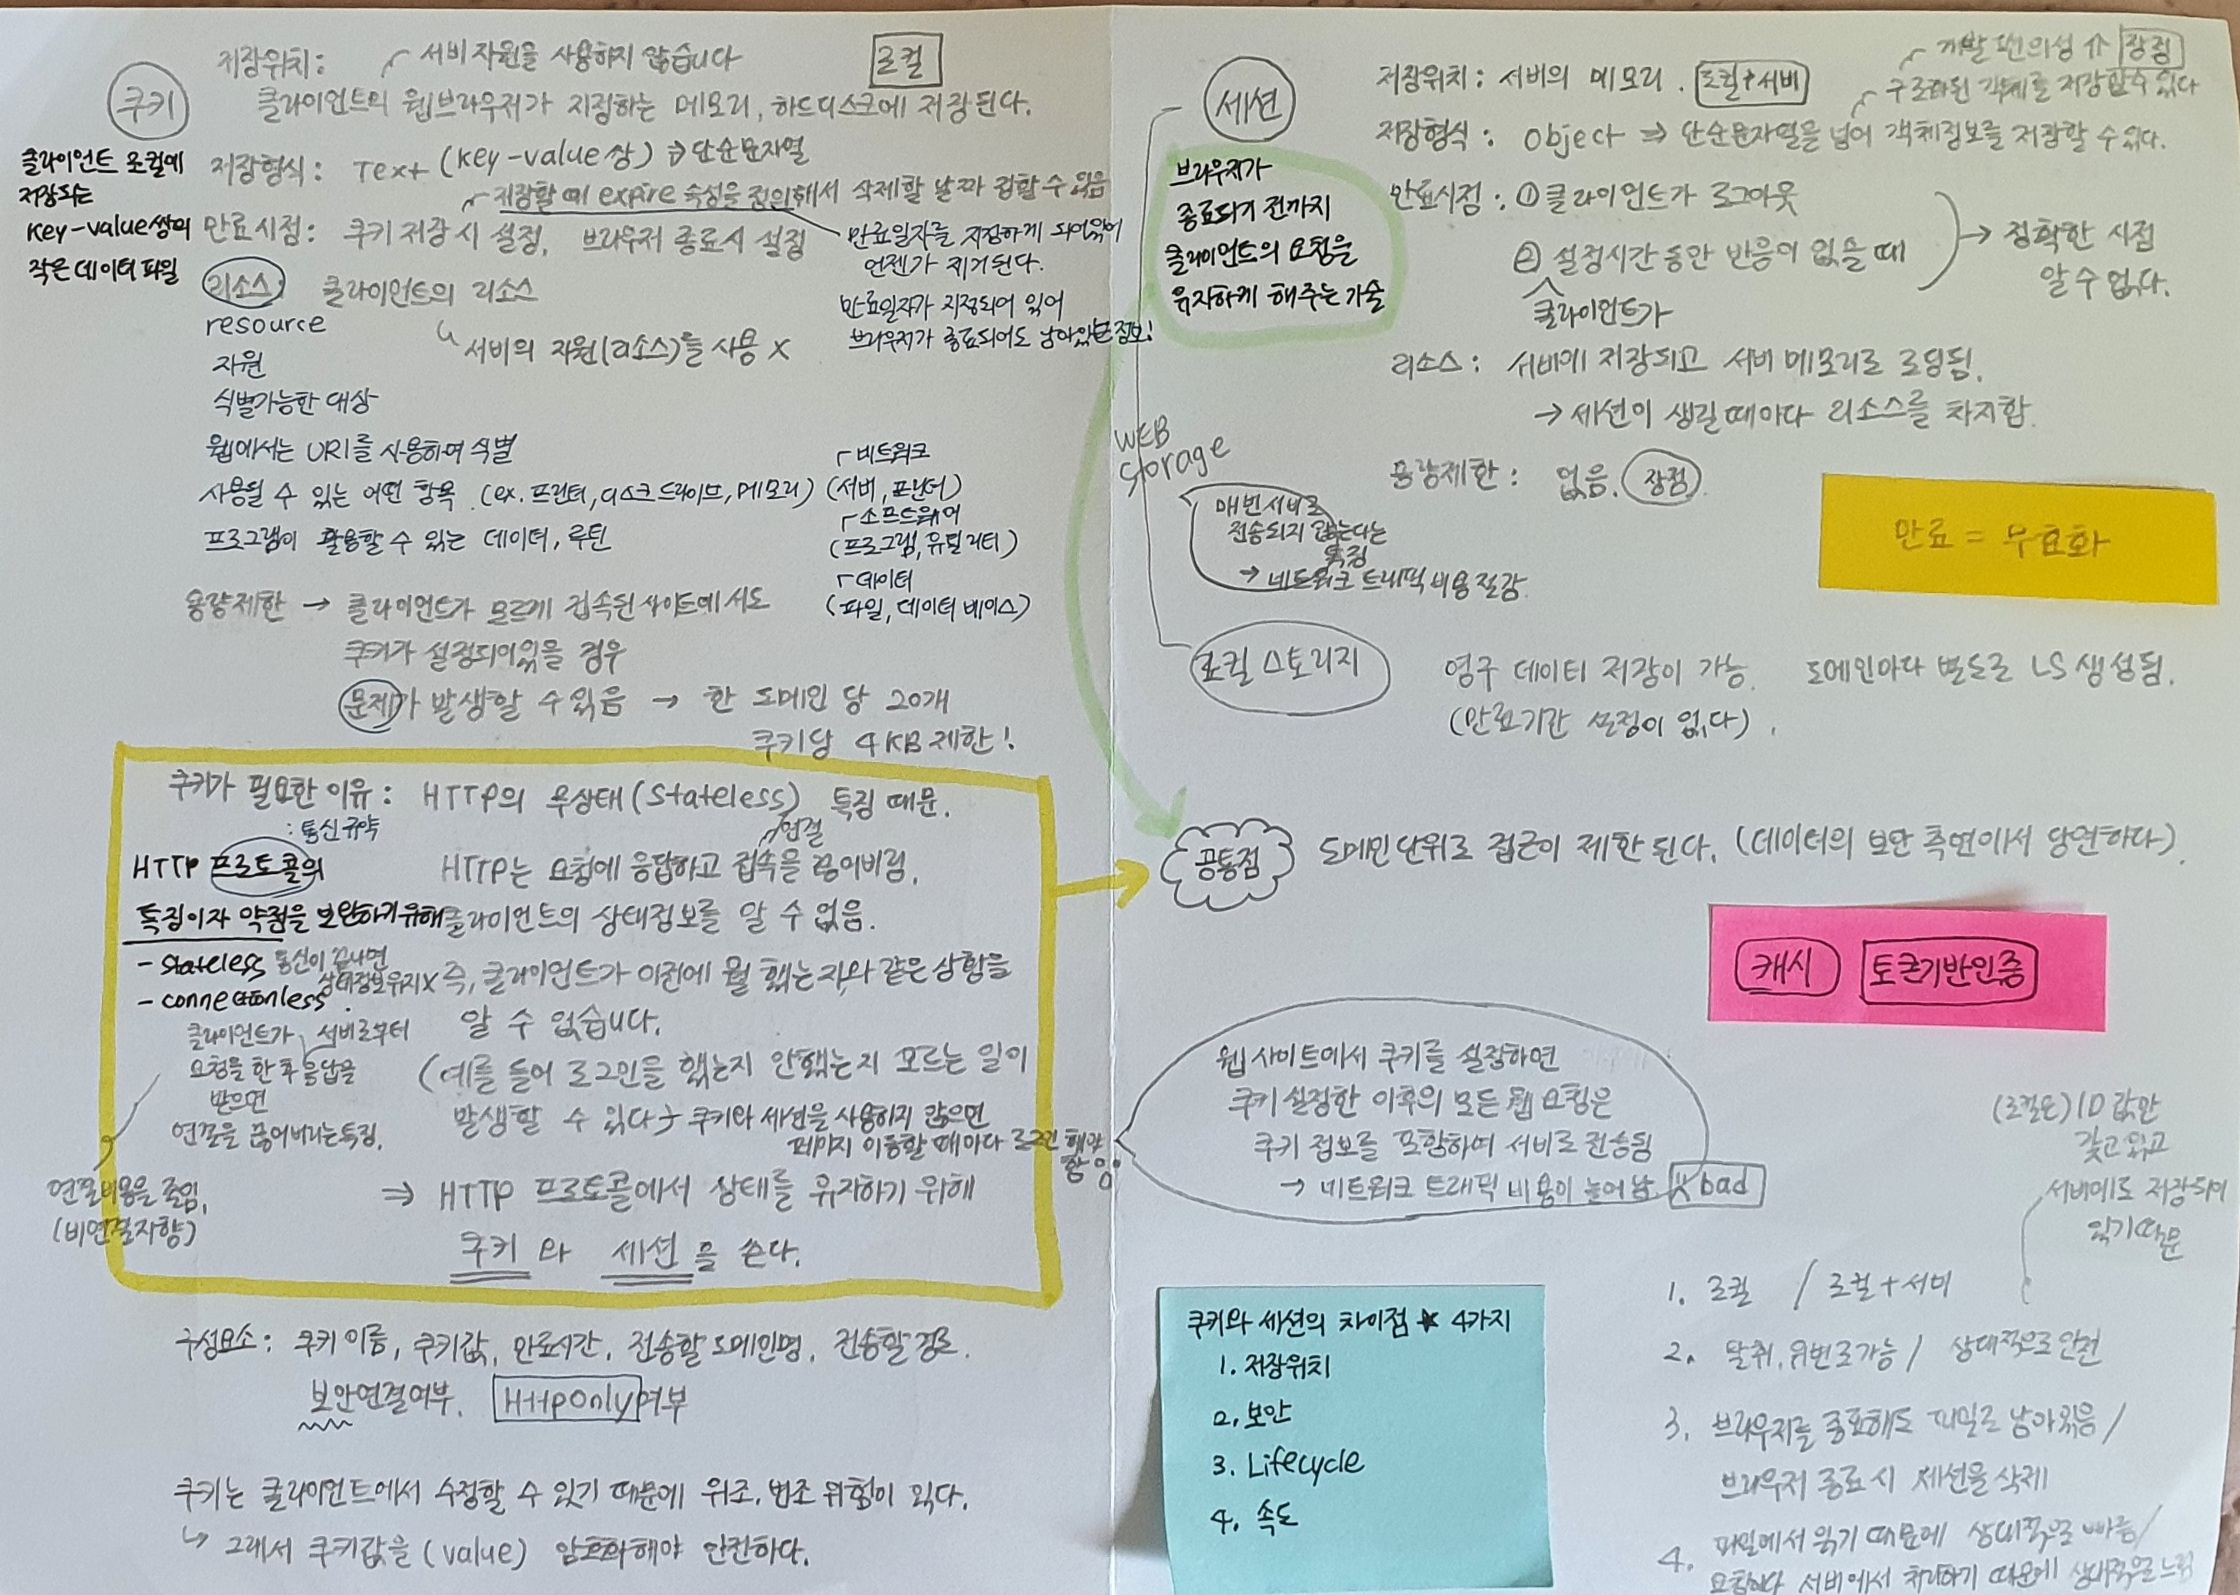 쿠키
클라이언트 로컬에
저장되는
key-value쌍의
작은 데이터 파일
저장위치: 서버 자원을 사용하지 않습니다 로컬
클라이언트의 웹브라우저가 지정하는 메모리, 하드디스크에 저장된다.
저장형식: Text (key-value 쌍) ⇒ 단순문자열
저장할 때 expire 속성을 정의해서 삭제할 날짜 정할 수 있음
만료시점: 쿠키 저장 시 설정, 브라우저 종료시 설정
만료일자를 지정하게 되어있어
언젠가 제거된다.
만료일자가 지정되어 있어
브라우저가 종료되어도 남아있는 정보!
리소스: 클라이언트의 리소스
↳ 서버의 자원(리소스)를 사용 X
resource
자원
식별가능한 대상
웹에서는 URI를 사용하여 식별
사용될 수 있는 어떤 항목 (ex. 프린터, 디스크 드라이브, 메모리)
프로그램이 활용할 수 있는 데이터, 루틴
네트워크
(서버, 프린터)
소프트웨어
(프로그램, 유틸리티)
데이터
(파일, 데이터 베이스)
용량제한 → 클라이언트가 모르게 접속된 사이트에서도
쿠키가 설정되어있을 경우
문제가 발생할 수 있음 → 한 도메인 당 20개
쿠키당 4KB 제한!
쿠키가 필요한 이유: HTTP의 무상태(Stateless) 특징 때문.
: 통신규약
HTTP 프로토콜의
특징이자 약점을 보완하기위해
- stateless 통신이 끝나면
상태정보 유지X
- connectionless
클라이언트가 서버로부터
요청을 한 후 응답을
받으면
연결을 끊어버리는 특징.
연결비용을 줄임,
(비연결지향)
연결
HTTP는 요청에 응답하고 접속을 끊어버림,
클라이언트의 상태정보를 알 수 없음.
즉, 클라이언트가 이전에 뭘 했는지와 같은 상황을
알 수 없습니다.
(예를 들어 로그인을 했는지 안했는지 모르는 일이
발생할 수 있다 → 쿠키와 세션을 사용하지 않으면
페이지 이동할 때마다 로그인 해야
함
⇒ HTTP 프로토콜에서 상태를 유지하기 위해
쿠키 와 세션 을 쓴다.
구성요소: 쿠키 이름, 쿠키값, 만료시간, 전송할 도메인명, 전송할 경로,
보안연결여부, HttpOnly여부
쿠키는 클라이언트에서 수정할 수 있기 때문에 위조, 변조 위험이 있다.
↳ 그래서 쿠키값을 (value) 암호화해야 안전하다.
세션
브라우저가
종료되기 전까지
클라이언트의 요청을
유지하게 해주는 기술
개발 편의성 ⇑ 장점
저장위치: 서버의 메모리. 로컬+서버 구조화된 객체를 저장할 수 있다
저장형식: Object ⇒ 단순문자열을 넘어 객체정보를 저장할 수 있다.
만료시점: ① 클라이언트가 로그아웃
② 설정시간 동안 반응이 없을 때
클라이언트가
→ 정확한 시점
알 수 없다.
리소스: 서버에 저장되고 서버 메모리로 로딩됨.
→ 세션이 생길 때마다 리소스를 차지함.
용량제한: 없음. 장점
WEB
Storage
매번 서버로
전송되지 않는다는
특징
→ 네트워크 트래픽 비용 절감
만료 = 무효화
로컬 스토리지
영구 데이터 저장이 가능. 도메인마다 별도로 LS 생성됨.
(만료기간 설정이 없다).
공통점
도메인 단위로 접근이 제한 된다. (데이터의 보안 측면에서 당연하다).
캐시 토큰기반인증
웹 사이트에서 쿠키를 설정하면
쿠키 설정한 이후의 모든 웹 요청은
쿠키 정보를 포함하여 서버로 전송됨
→ 네트워크 트래픽 비용이 늘어남 X bad
쿠키와 세션의 차이점 ★ 4가지
1. 저장위치
2. 보안
3. Lifecycle
4. 속도
(로컬은) ID값만
갖고 있고
서버에도 저장되어
있기 때문
1. 로컬 / 로컬+서버
2. 탈취, 위변조가능 / 상대적으로 안전
3. 브라우저를 종료해도 파일로 남아있음 /
브라우저 종료 시 세션을 삭제
4. 파일에서 읽기 때문에 상대적으로 빠름 /
요청마다 서버에서 처리하기 때문에 상대적으로 느림